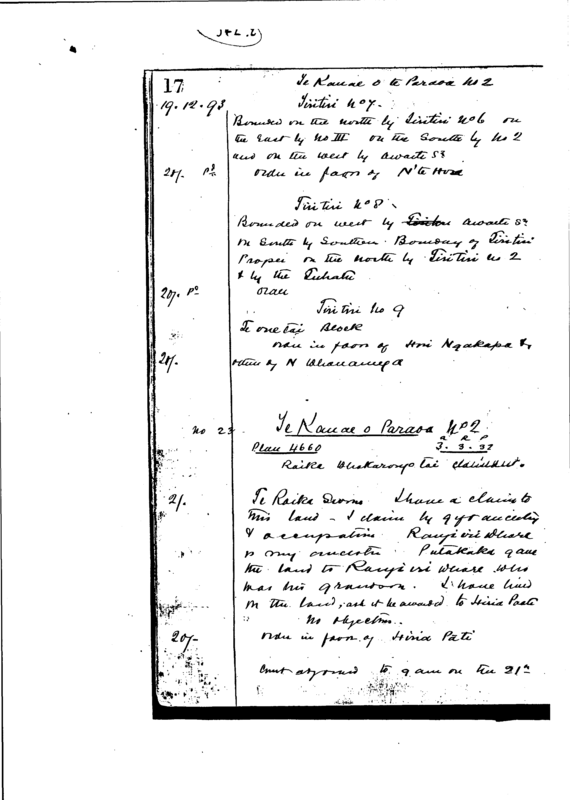 17
Te Kanae o te Paraoa No 2
19.12.93
Tiritiri No 7.
Bounded on the north by Tiritiri No 6 on
the East by No III on the South by No 2
and on the west by Awaite St
20/. Pd order in favor of N' te Hora
Tiritiri No 8
Bounded on west by Awaite St
on South by Southern Bounday of Tiritiri
Proper on the north by Tiritiri No 2
& by the Tuhatu
20/. Pd order
Tiritiri No 9
Te onetai Block
order in favor of Hori Ngakapa &
20/. others of N Whanaunga
No 23 Te Kanae o Paraoa No 2
A R P
Plan 4660 3. 3. 32
Raika Whakarongotai claimant.
2/. Te Raika Sworn I have a claim to
this land - I claim by gift ancestry
& occupation Rangi iri whare
is my ancestor Putakaka gave
the land to Rangi iri whare who
was his grandson. I have lived
on the land, ask it be awarded to Hiria Pati
No objectors.
20/- order in favor of Hiria Pati
Court adjorned to 9 am on the 21st